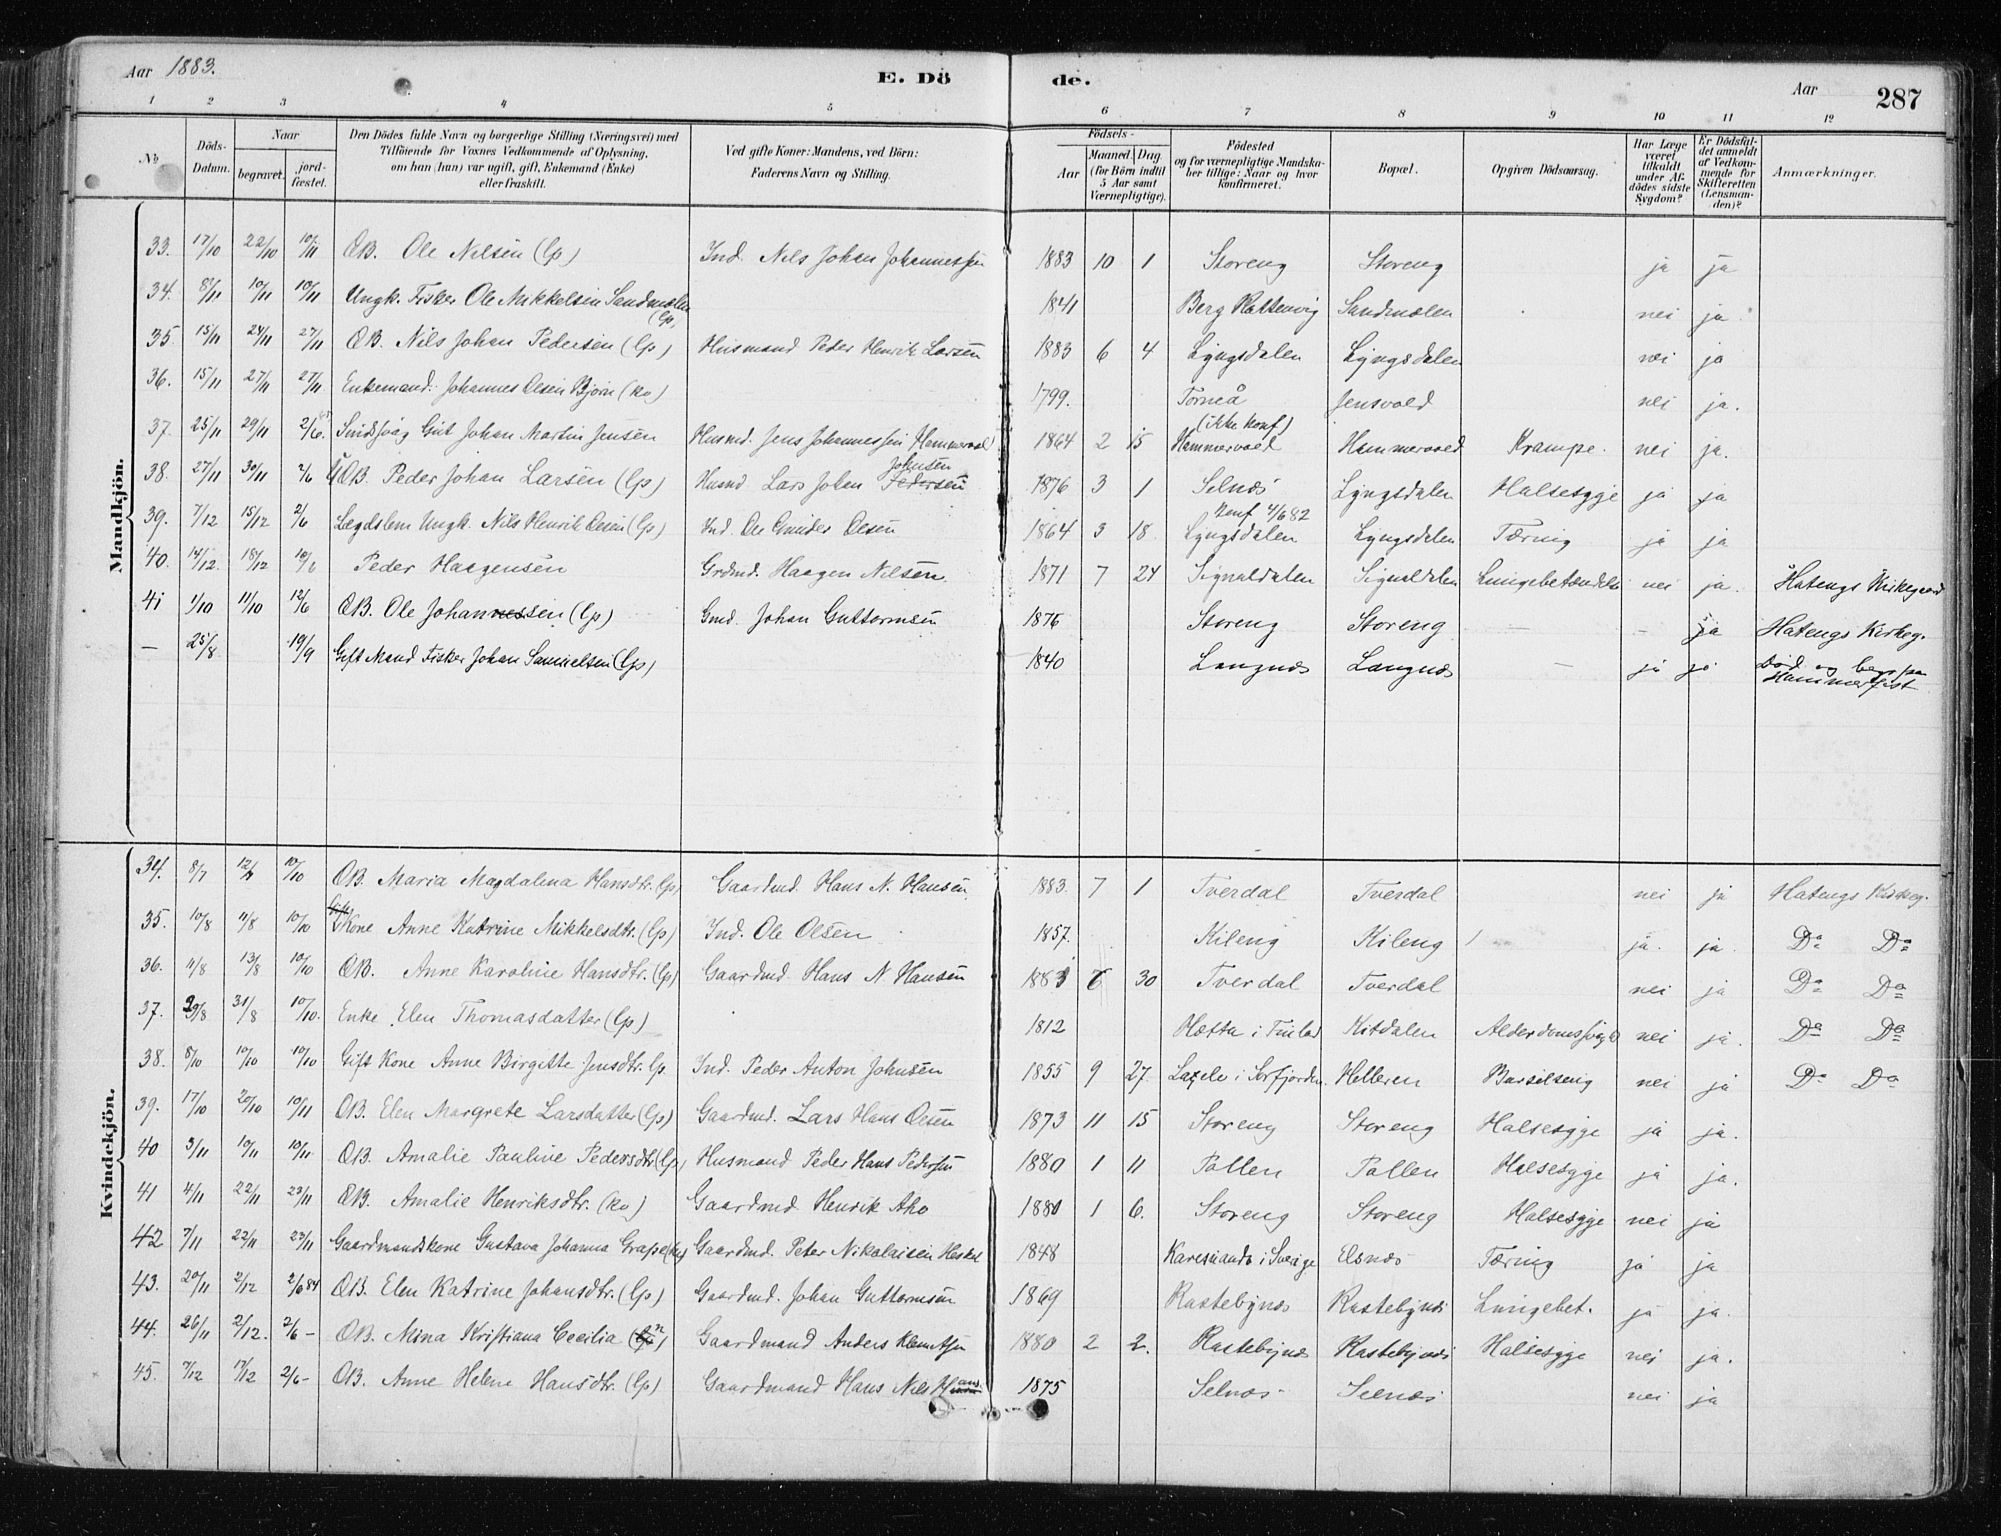 Aar 1883.
E. Dö
de.
Aar
287
1 2 3 4 5 6 7 8 9 10 11 12
No
Döds-Datum.
Naar
begravet.
jord-fæstet.
Den Dödes fulde Navn og borgerlige Stilling (Næringsvei) med
Tilföiende for Voxnes Vedkommende af Oplysning,
om han (hun) var ugift, gift, Enkemand (Enke)
eller fraskilt.
Ved gifte Koner: Mandens, ved Börn:
Faderens Navn og Stilling.
Födsels-
Aar
Maaned. Dag.
(for Börn indtil
5 Aar samt
Værnepligtige).
Födested
og for værnepligtige Mandska-
ber tillige: Naar og hvor
konfirmeret.
Bopæl.
Opgiven Dödsaarsag.
Har Læge
været
tilkaldt
under Af-
dödes sidste
Sygdom?
Er Dödsfal-
det anmeldt
af Vedkom-
mende for
Skifteretten
(Lensman-
den)?
Anmærkninger.
Mandkjön.
33. 17/10 22/10 10/11 ÆB. Ole Nilsen (lp) Ind. Nils Johan Johannessen 1883 10 1 Storeng Storeng ja ja
34. 8/11 10/11 10/11 Ungk. Fisker Ole Mikkelsen Sandmælen (lp) 1841 Berg Sandmælen nei ja
35. 15/11 24/11 27/11 ÆB. Nils Johan Pedersen (lp) Husmand Peder Henrik Larsen 1883 6 4 Lyngsdalen Lyngsdalen nei ja
36. 15/11 27/11 27/11 Enkemand: Johannes Olsen Bjørn (kv) 1799. Torneå Jensvold nei ja.
37. 25/11 29/11 2/6. Sindssvag Gut Johan Martin Jensen Husmd. Jens Johannessen Hammervold 1864 2 15 (ikke konf) Hammervold Hammervold Krampe. nei ja.
38. 27/11 30/11 2/6 ÆB. Peder Johan Larsen (lp) Husmd Lars Johan Pedersen Johnsen 1876 3 1 Selnæs Lyngsdalen Halsesyge ja ja
39. 7/12 15/12 2/6 Lægdslem Ungk. Nils Henrik Olsen (lp) Ind. Ole Olsen 1864 3 18 konf 4/6 82 Lyngsdalen Lyngsdalen Tæring ja ja
40. 14/12 18/12 10/6 Peder Haagensen Grdmd. Haagen Nilsen 1871 7 24 Signaldalen Signaldalen Lungebetændelse nei ja. Hatengs Kirkegaard
41 1/10 11/10 12/6 ÆB. Ole Johannessen (lp) Gmd. Johan Guttormsen 1876 Storeng Storeng – – ja Hatengs Kirkeg.
– 25/8 19/9 Gift Mand Fisker Johan Samuelsen (lp) 1840 Langnæs Langnæs – ja ja Død og begr. paa Hammerfest
Kvindekjön.
34. 8/7 12/8 10/10 ÆB. Maria Magdalena Hansdtr. (lp) Gaardmd. Hans N. Hansen 1883. 7 1 Tverdal Tverdal nei ja Hatengs Kirkeg.
35. 10/8 11/8 10/10 Gift Kone Anne Katrine Mikkelsdtr. (lp) Ind. Ole Olsen 1857. Kileng Kileng ja. ja. Do Do
36. 11/8 13/8 10/10 ÆB. Anne Karoline Hansdtr. (lp) Gaardmd. Hans N Hansen 1883 6 30 Tverdal Tverdal nei ja Do Do
37. 29/8 31/8 10/10. Enke Elen Thomasdatter (lp) 1812 Hætta i Finland Kitdalen Alderdomssvaghed nei ja. Do Do
38. 8/10 10/10 10/10 Gift Kone Anne Birgitte Jensdtr. lp. Ind. Peder Anton Johnsen 1855 9 27. i Sørfjorden Helleren Barselseng nei ja Do Do
39. 17/10 20/10 10/11 ÆB. Elen Margrete Larsdatter (lp) Gaardmd. Lars Hans Olsen 1873 11 15 Storeng Storeng Halsesyge ja ja.
40 3/11 10/11 10/11 ÆB. Amalie Pauline Pedersdtr (lp) Husmand Peder Hans Pedersen 1880 1 11 Pollen Pollen Halsesyge ja ja.
41 4/11 22/11 23/11 ÆB. Amalie Henriksdtr. (kv) Gaardmd. Henrik Aho 1880 1 6. Storeng Storeng Halsesyge nei ja
42 7/11 22/11 23/11 Gaardmandskone Gustava Johanna Grape (kv) Gaardmd. Peter Nikolaisen Heskel 1848 Karesuando i Sverige Elsnæs Tæring ja ja
43. 20/11 2/12 2/6 84 ÆB. Elen Katrine Johansdtr. (lp) Gaardmd. Johan Guttormsen 1869 Rastebynæs Rastebynæs Lungebet. ja ja.
44. 26/11 2/12. 2/6 – ÆB. Mina Kristiana Cecilia Gaardmand Anders Klemetsen 1880 2 2. Rastebynæs Rastebynæs Halsesyge nei ja.
45. 7/12 17/12 2/6 – ÆB. Anne Helene Hansdtr. (lp) Gaardmand Hans Nils Hansen 1875 Selnæs Selnæs nei ja